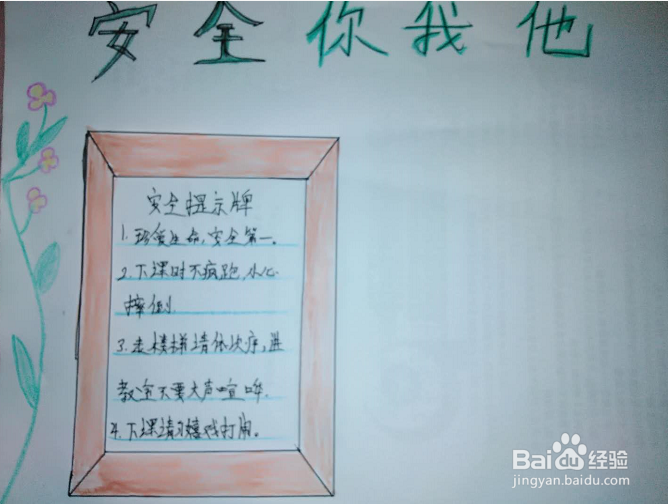 安全你我他
安全提示牌
1.珍爱生命,安全第一。
2.下课时不疯跑,小心
摔倒.
3.走楼梯请依次序,进
教室不要大声喧哗.
4.下课请勿嬉戏打闹。
Baidu经验
jingyan.baidu.com